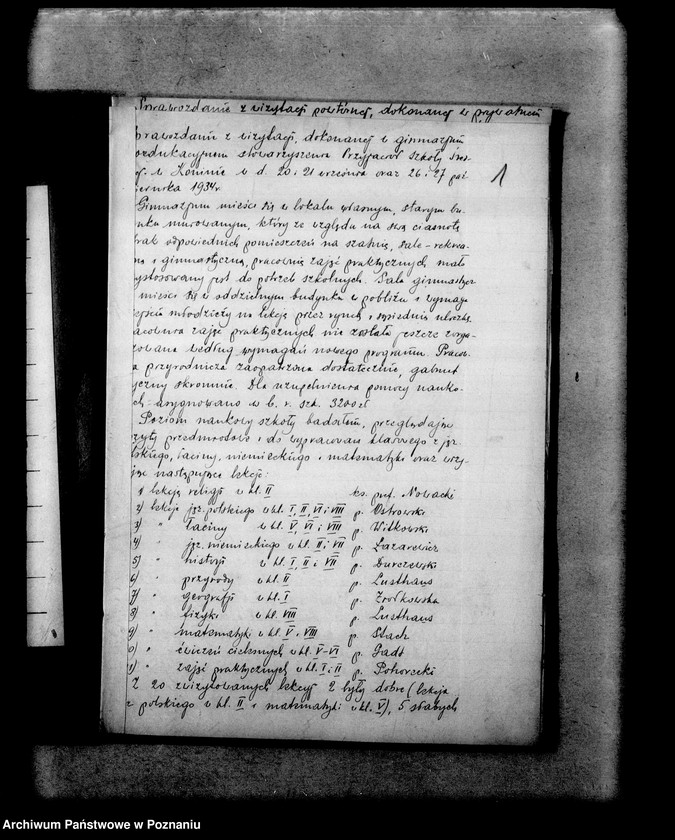 Sprawozdanie z wizytacji powtórnej, dokonanej w prywatnem
prawozdanie z wizytacji, dokonanej w gimnazjum
oedukacyjnem stowarzyszenia Przyjaciół Szkoły Śred
w Koninie w d. 20 i 21 września oraz 26 i 27 paź
iernika 1934 r.
1
Gimnazjum mieści się w lokalu własnym, starym bu-
nku murowanym, który ze względu na swą ciasnotę
rak odpowiednich pomieszczeń na szatnię, salę-rekrea
ną i gimnastyczną, pracownię zajęć praktycznych mało
ystosowany jest do potrzeb szkolnych. Sala gimnastycz
mieści się w oddzielnym budynku w pobliżu i wymaga
ejścia młodzieży na lekcję przez rynek i sąsiednie uliczki
acownia zajęć praktycznych nie została jeszcze zorga-
zowana według wymagań nowego programu. Pracow
a przyrodnicza zaopatrzona dostatecznie, gabinet
yczny skromnie. Dla uzupełnienia pomocy nauko-
ch asygnowano w b. r. szk. 3200 zł
Poziom naukowy szkoły badałem, przeglądając
zyty przedmiotowe i do wypracowań klasowych z jęz.
lskiego, łaciny, niemieckiego i matematyki oraz wizy-
jąc następujące lekcje:
1) lekcja religji w kl. II ks. pref. Nowacki
2) lekcja jęz. polskiego w kl. I, II, VI i VIII p. Ostrowski
3) " łaciny w kl. V, VI i VIII p. Witkowski
4) " jęz. niemieckiego w kl. II i VII p. Łazarewicz
5) " historji w kl. I, II i VII p. Durczewski
6) " przyrody w kl. II p. Lusthaus
7) " geografji w kl. I p. Ziółkowska
8) " fizyki w kl. VIII p. Lusthaus
9) " matematyki w kl. V i VIII p. Stach
0) " ćwiczeń cielesnych w kl. V-VI p. Gadt
1) " zajęć praktycznych w kl. I i II p. Pohorecki
Z 20 zwizytowanych lekcyj 2 były dobre (lekcja
z polskiego w kl. II i matematyki w kl. V), 5 słabych
Archiwum Państwowe w Poznaniu